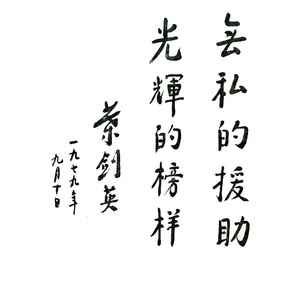 无私的援助
光輝的榜样
葉剑英
一九七九年
九月十日